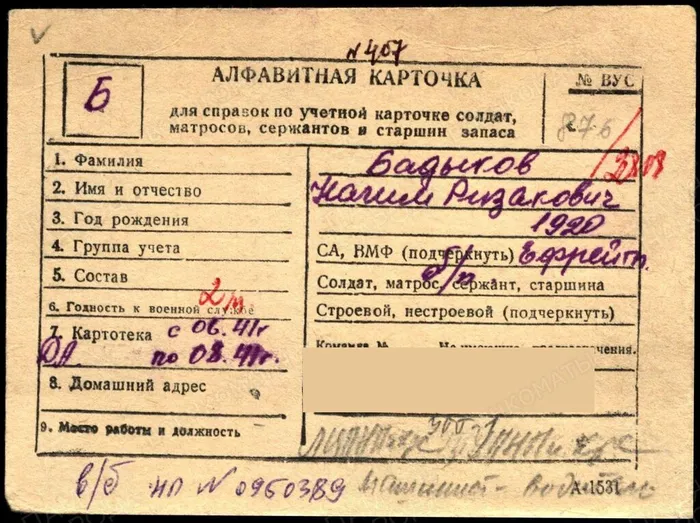 № 407
АЛФАВИТНАЯ КАРТОЧКА
№ ВУС
Б
для справок по учетной карточке солдат,
матросов, сержантов и старшин запаса
876
1. Фамилия
Бадыков
2. Имя и отчество
Нагим Ризакович
3. Год рождения
1920
4. Группа учета
СА, ВМФ (подчеркнуть) Ефрейт.
5. Состав
б/п
Солдат, матрос, сержант, старшина
6. Годность к военной службе
Строевой, нестроевой (подчеркнуть)
7. Картотека с 06.41г
по 08.41г.
Команда №
8. Домашний адрес
9. Место работы и должность
в/б НП № 0950389 машинист-водитель
А-1531